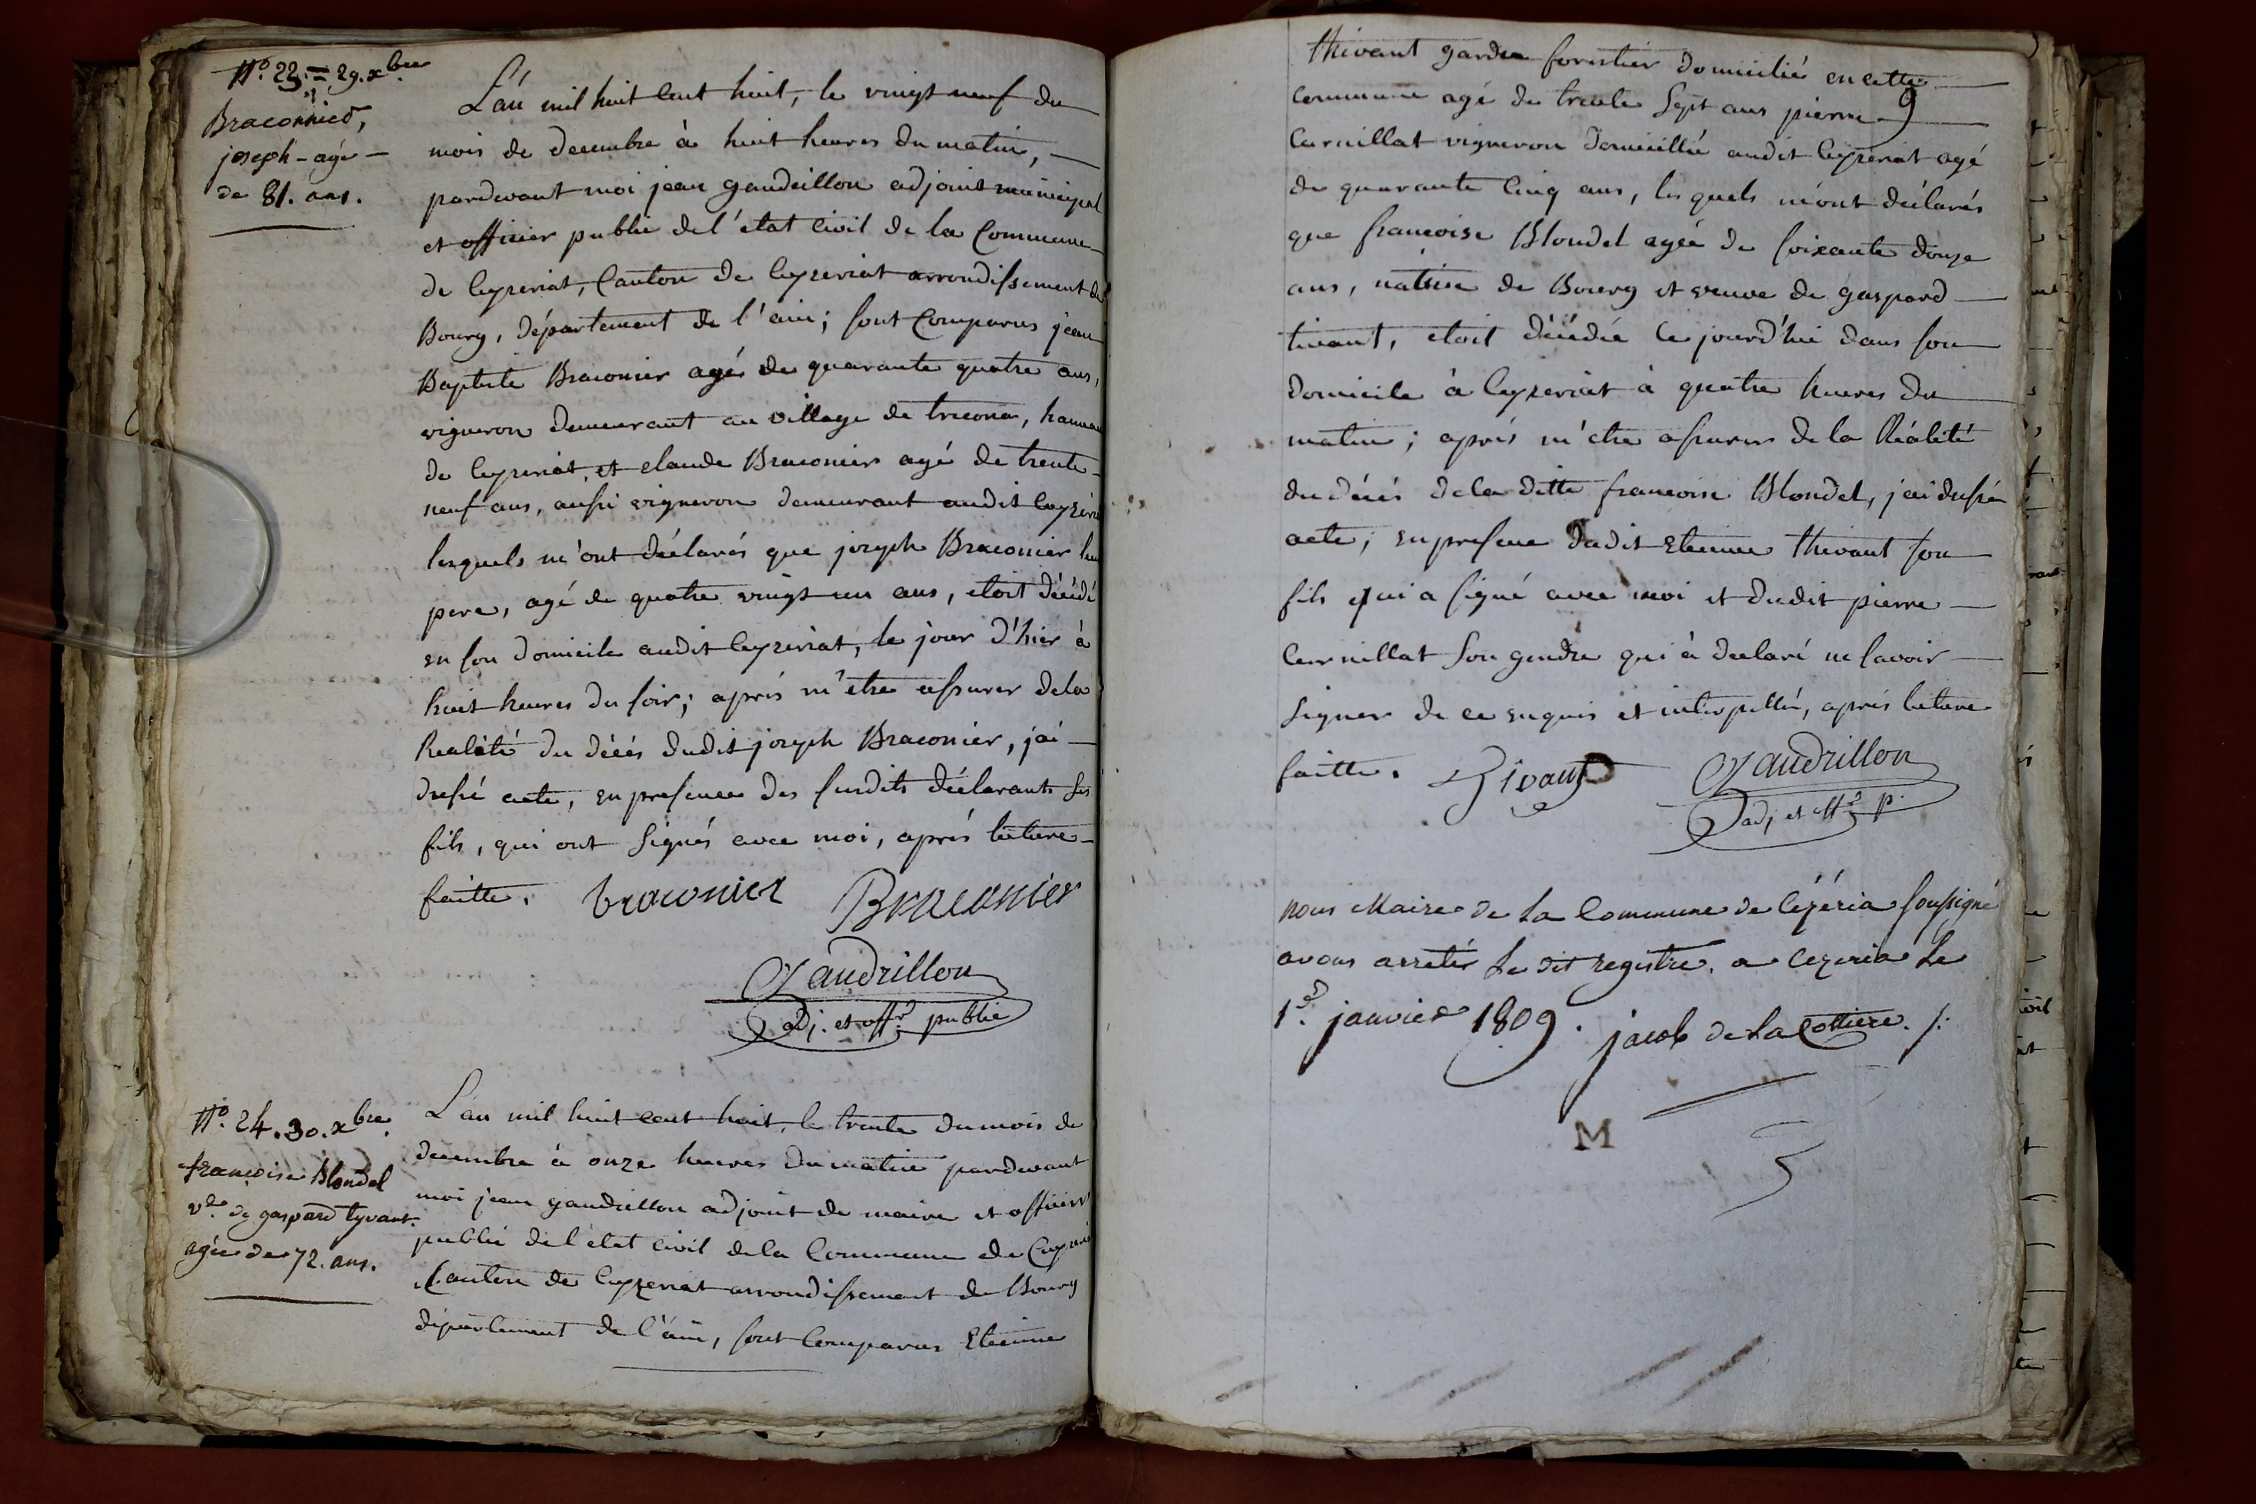 N.º 23. = 29. xbre
Braconnier,
joseph - agé -
de 81. ans.
L'an mil huit cent huit, le vingt neuf du
mois de decembre à huit heures du matin,
pardevant moi jean gaudrillon adjoint municipal
et officier public de l'état civil de la Commune
de Ceyzeriat, Canton de Ceyzeriat arrondissement de
Bourg, département de l'ain; sont Comparus jean
Baptiste Braconier agé de quarante quatre ans,
vigneron demeurant au village de treconat, hameau
de Ceyzeriat, et claude Braconier agé de trente
neuf ans, aussi vigneron demeurant audit Ceyzériat
lesquels m'ont déclarés que joseph Braconier leur
pere, agé de quatre vingt un ans, etoit décédé
en son domicile audit Ceyzeriat, le jour d'hier à
huit heures du soir; aprés m'etre assurer de la
Realité du décés dudit joseph Braconier, j'ai
dressé acte, en presence des susdits déclarants ses
fils, qui ont signés avec moi, aprés lecture
faitte. braconier Braconier
Gaudrillon
adj. et offr. public
N.º 24. 30. xbre.
françoise Blondel
ve. de gaspard tyvant.
agée de 72. ans.
L'an mil huit cent huit, le trente du mois de
decembre à onze heures du matin pardevant
moi jean gaudrillon adjoint de maire et officier
public de l'état civil de la Commune de Ceyzeriat
Canton de Ceyzeriat arrondissement de Bourg
département de l'ain, sont Comparus Etienne
thivant garde forestier domicilié en cette
9
commune agé de trente sept ans pierre
Curnillat vigneron domicilié audit Ceyzeriat agé
de quarante Cinq ans, lesquels m'ont déclarés
que françoise Blondel agée de soixante douze
ans, native de Bourg et veuve de gaspard
tivant, etoit décédée ce jourd'hui dans son
domicile à Ceyzeriat à quatre heures du
matin; aprés m'etre assurer de la Réalité
du décés de la ditte françoise Blondel, j'ai dressé
acte, en presence dudit Etienne thivant son
fils qui a signé avec moi et dudit pierre
Curnillat son gendre qui à declaré ne savoir
signer de ce enquis et interpellé, aprés lecture
faitte. Tivant Gaudrillon
adj. et offr. p.
nous Maire de la Commune de Cézéria soussigné
avons arretés le dit registre. a Cezeria le
1er. janvier 1809. jacob de la Cottiere.
M